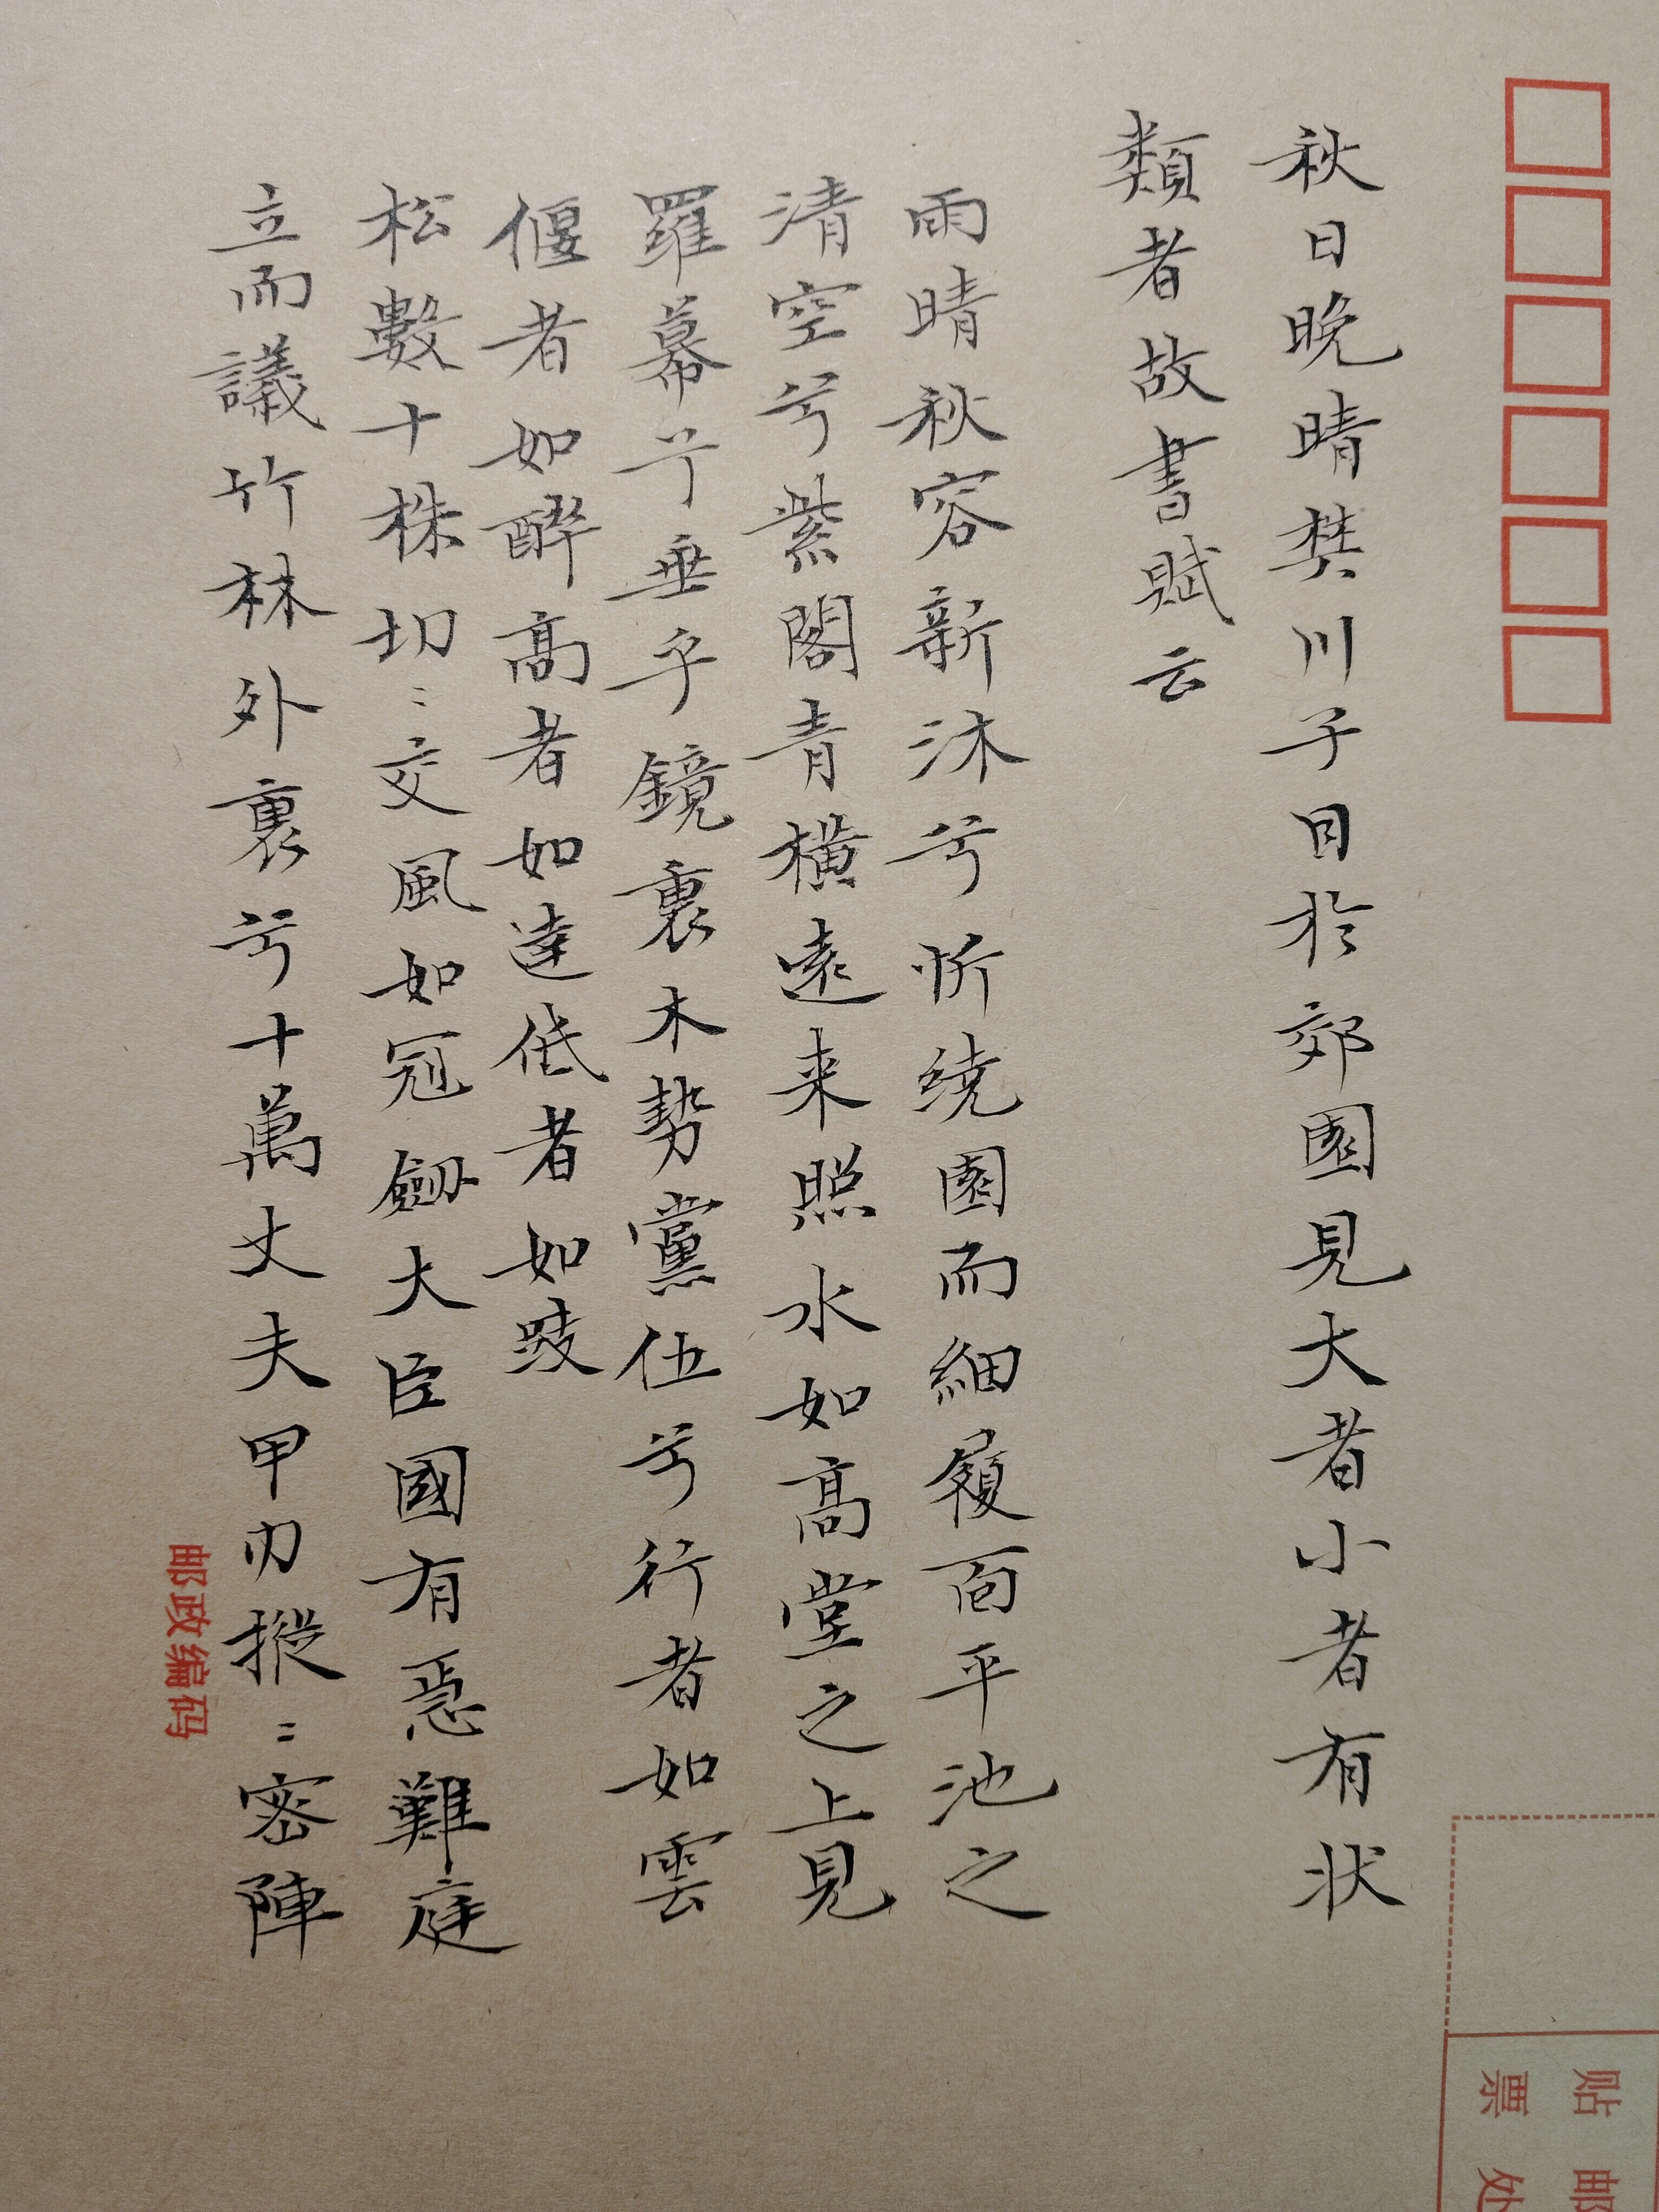 秋日晚晴樊川子目於郊園見大者小者有状
類者故書賦云
雨晴秋容新沐兮忻繞園而細履面平池之
清空兮紫閣青橫遠来照水如高堂之上見
羅幕兮垂乎鏡裏木勢黨伍兮行者如雲
偃者如醉高者如達低者如跂
松數十株切﹕交風如冠劔大臣國有急難庭
立而議竹林外裏兮十萬丈夫甲刃摐﹕密陣
邮政编码
贴邮
票处